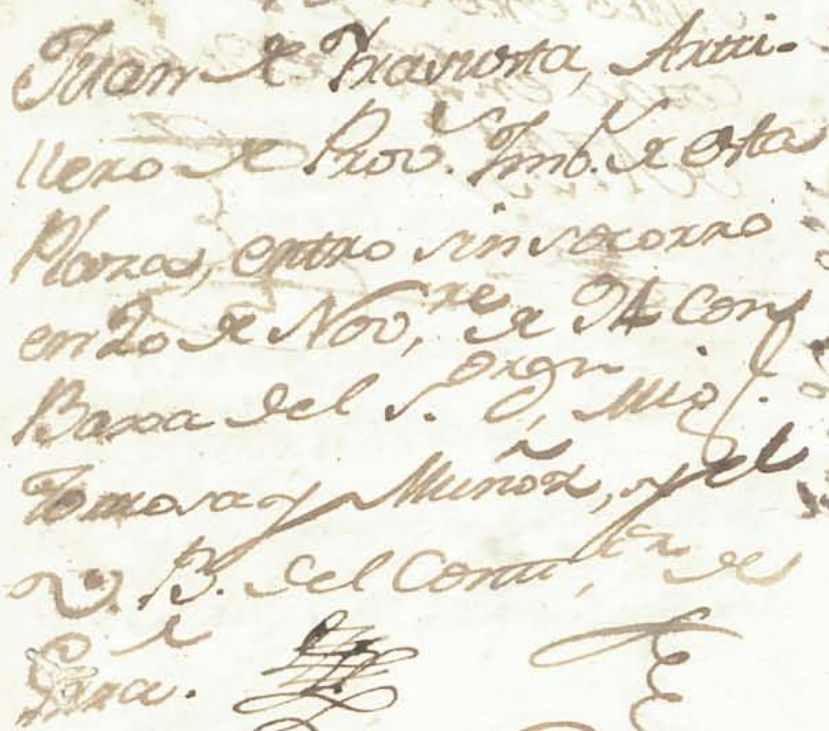 Juan de Traviesta, Artti-
llero de Prov.l Imb.l de esta
Plaza, entro sin socorro
en 20 de Nov,re de 74 con
Baxa del S. D, Mig.l
Tomosa y Muñoz, y el
V. B. del Comi, de
Gra.